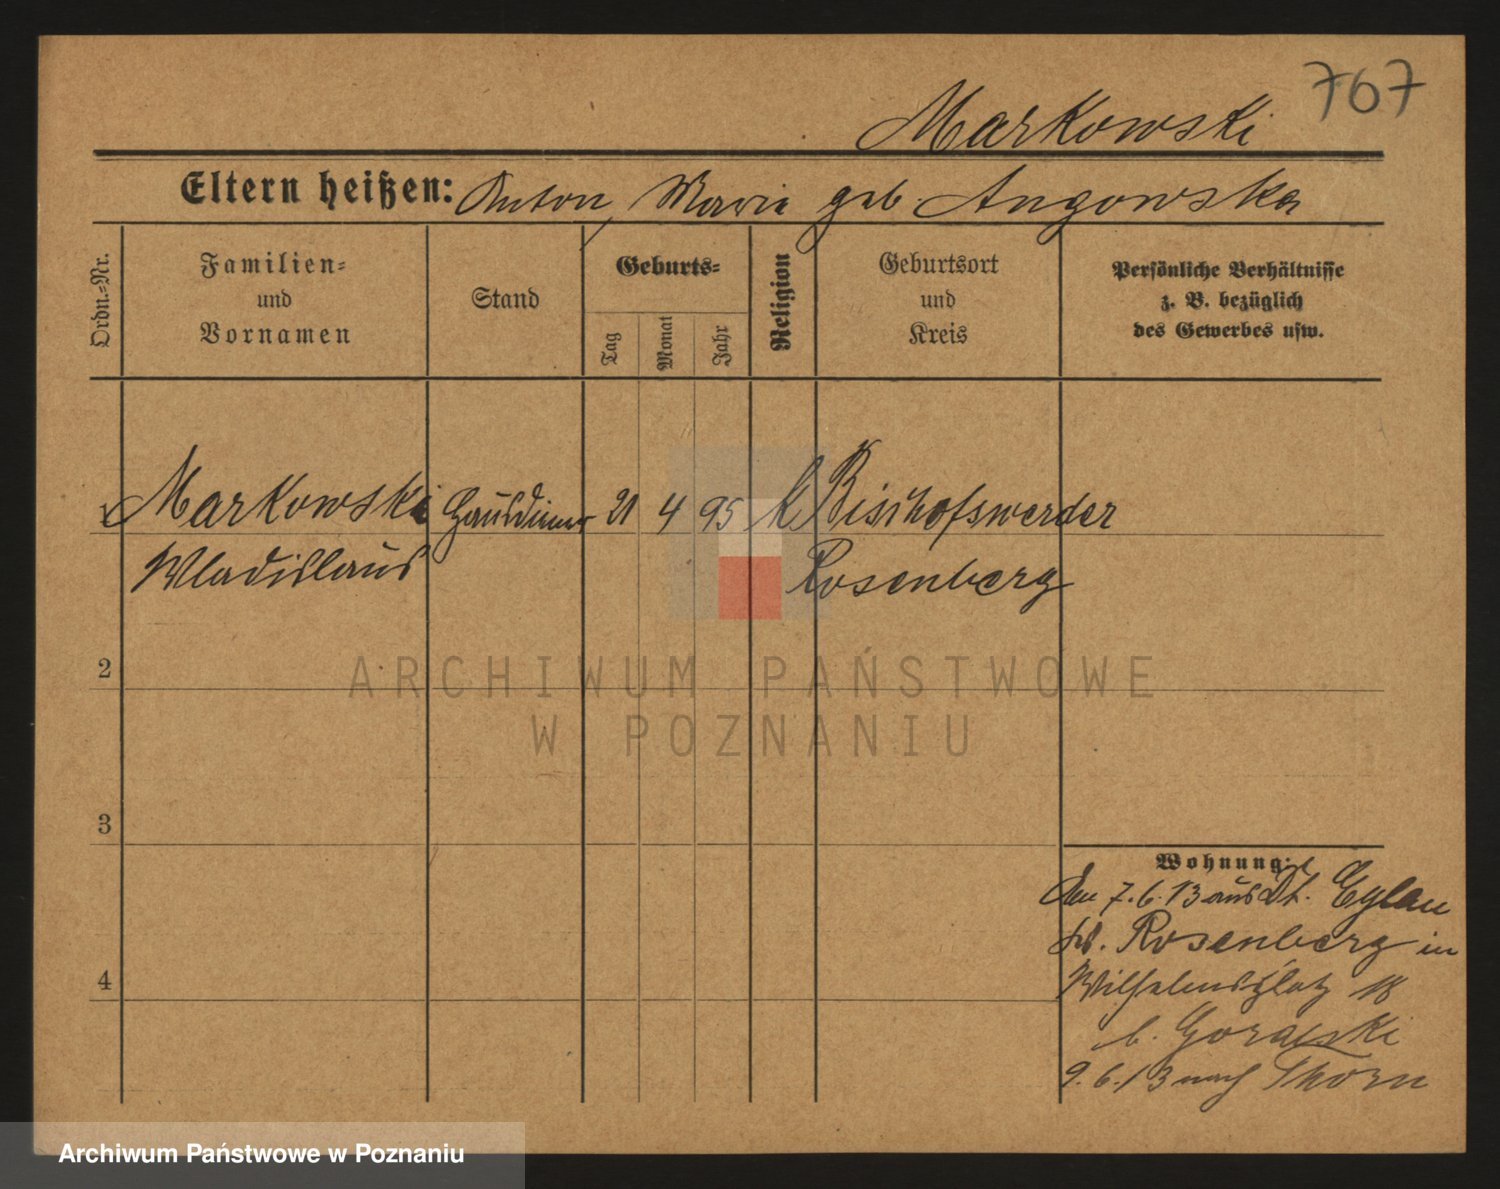 767
Markowski
Eltern heißen: Anton, Maria geb. Angowska
Ordn.-Nr.
Familien-
und
Vornamen
Stand
Geburts-
Tag
Monat
Jahr
Religion
Geburtsort
und
Kreis
Persönliche Verhältnisse
z. B. bezüglich
des Gewerbes usw.
1 Markowski Hausdiener 21 4 95 k Bischofswerder
Wladislaus Rosenberg
2
3
4
Wohnung:
Am 7.6.13 aus Dt. Eylau
Rosenberg in
Wilhelmsplatz 18
b. Goralski
9.6.13 nach Thorn
ARCHIWUM PAŃSTWOWE
W POZNANIU
Archiwum Państwowe w Poznaniu